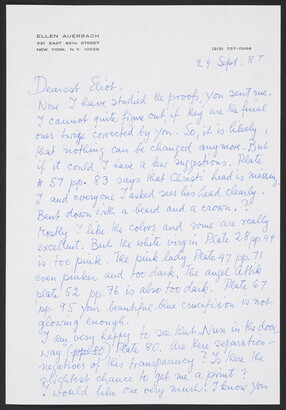 ELLEN AUERBACH
931 EAST 95TH STREET
NEW YORK, N.Y. 10028
(212) 737-0966
29 Sept. 87
Dearest Eliot,
Now I have studied the proofs you sent me.
I cannot quite figure out, if they are the final
ones twice corrected by you. So, it is likely,
that nothing can be changed anymore. But
if it could I have a few suggestions. Plate
# 57 pp. 83 says that Christ's head is missing.
I and everyone I asked sees his head clearly.
Bent down with a beard and a crown.
Mostly I like the colors and some are really
excellent. But the white virgin Plate 28 pp. 49
is too pink. The pink lady Plate 47 pp. 71
even pinker and too dark. The angel
plate 52 pp. 76 is also too dark. Plate 67
pp. 95 your beautiful blue crucifixion is not
glowing enough.
I am very happy to see that Nun in the door
way Plate 80. Are there separation-
negatives of this transparency? Is there the
slightest chance to get me a print?
I would like one very much. I know you